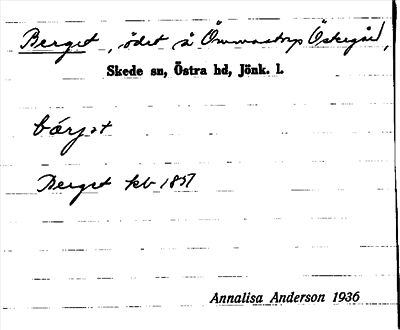 Berget, ödet å Ömmestorps Östergård,
Skede sn, Östra hd, Jönk. l.
bärjət
Berget kb 1857
Annalisa Anderson 1936